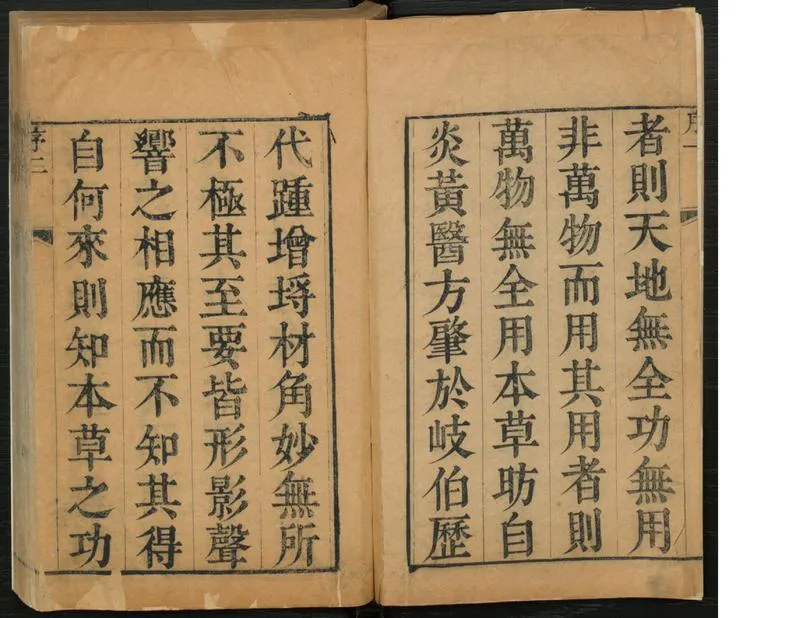 者則天地無全功無用
非萬物而用其用者則
萬物無全用本草昉自
炎黃醫方肇於岐伯歷
序一
代踵增埒材角妙無所
不極其至要皆形影聲
響之相應而不知其得
自何來則知本草之功
序二